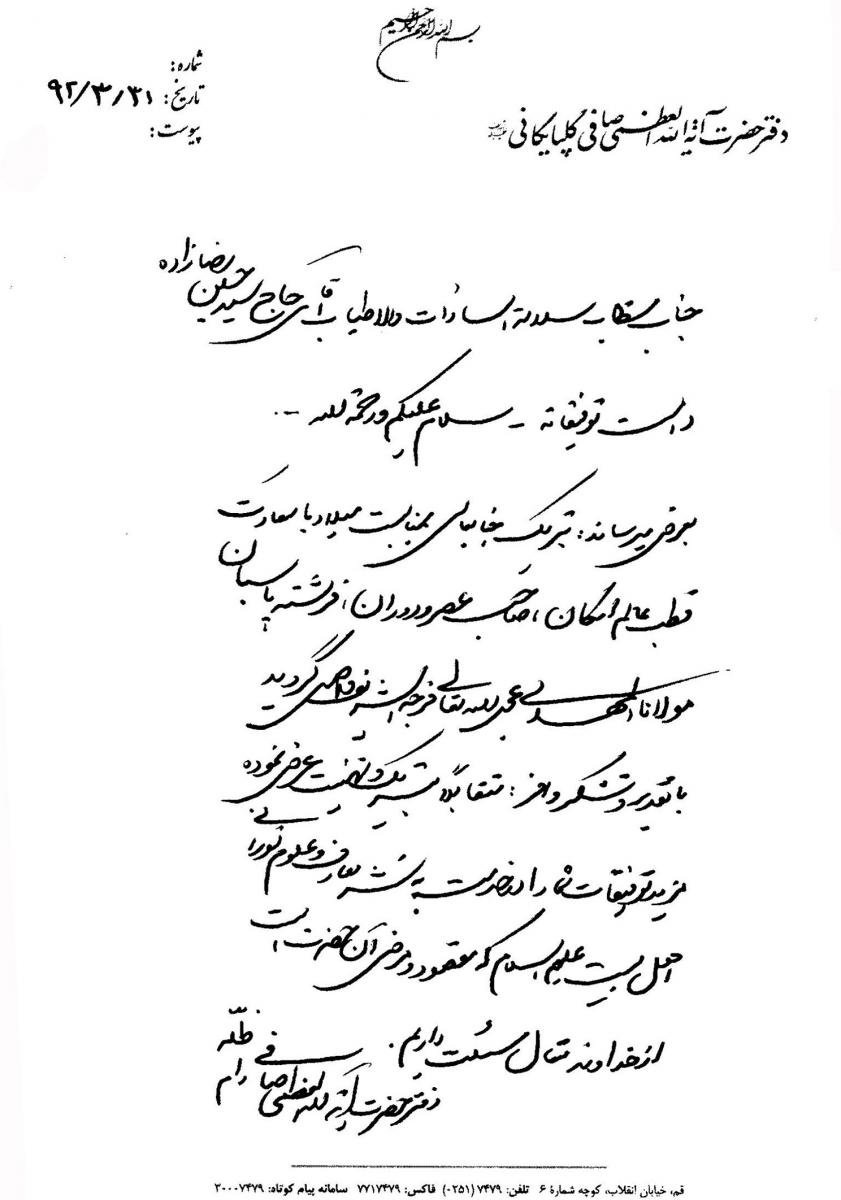 بسم الله الرحمن الرحیم
شماره:
تاریخ: ۹۲/۳/۳۱
پیوست:
دفتر حضرت آیة الله العظمی صافی گلپایگانی
جناب مستطاب سلالة السادات والاطیاب آقای حاج سید حسین رضازاده
دامت توفیقاته - سلام علیکم ورحمة الله -.
بعرض میرساند: تبریک جنابعالی بمناسبت میلاد با سعادت
قطب عالم امکان، صاحب عصر و دوران، فرشته پاسبان
مولانا المهدی عجل الله تعالی فرجه الشریف واصل گردید
با تقدیر و تشکر وافر: متقابلاً تبریک و تهنیت عرض نموده
مزید توفیقات شما را در خدمت به نشر معارف و علوم نورانی
اهل بیت علیهم السلام که مقصود و مرضی آن حضرت است
از خداوند متعال مسئلت داریم.
دفتر حضرت آیة الله العظمی صافی دام ظله
قم، خیابان انقلاب، کوچه شمارۀ ۶ تلفن: ۷۴۷۹ (۰۲۵۱) فاکس: ۷۷۱۷۴۷۹ سامانه پیام کوتاه: ۳۰۰۰۷۴۷۹